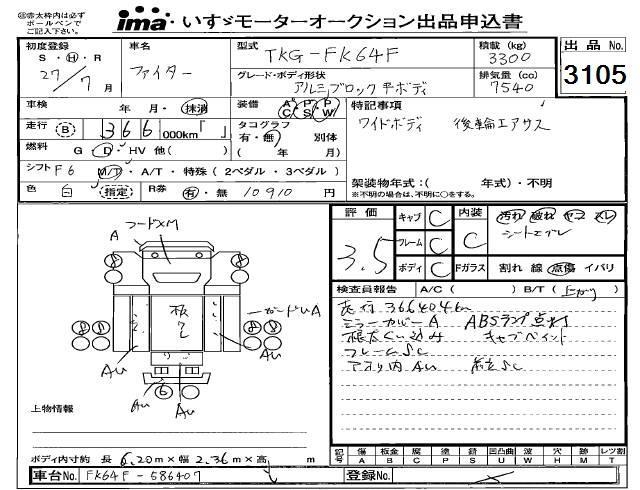 ㊟赤太枠内は必ず
ボールペンで
ご記入下さい。
ima・いすゞモーターオークション出品申込書
初度登録
S・H・R
27/7月
車名
ファイター
型式 TKG-FK64F
グレード・ボディ形状
アルミブロック 平ボディ
積載 (kg)
3300
排気量 (cc)
7540
出品 No.
3105
車検 年 月・抹消
装備 AC PS PW
特記事項
ワイドボディ 後輪エアサス
走行 B 366 000km「 」
タコグラフ
有・無 別体
( 年 月)
燃料 G D・HV 他( )
シフト F6 M/T・A/T・特殊 (2ペダル・3ペダル)
架装物年式:( 年式)・不明
※不明の場合は、不明に○をする。
色 白 指定 R券 有・無 10910 円
評価
3.5
キャブ C
フレーム C
ボディ C
内装
C
Fガラス
汚れ 破れ ヤコ スレ
割れ 線 点傷 イバリ
検査員報告 A/C ( ) B/T ( )
走行366404km
ミラーカバーA ABSランプ点灯
キャブペイント
フレームSC
アオリ内AU
A
A
AU
AU
AU
AU
上物情報
ボディ内寸約 長 6.20m×幅 2.36m×高 m
記号 傷A 凹B 腐C 塗P 錆S 凹凸曲U 波W 穴H 跡M レツ割T
車台No. FK64F-586407
登録No.